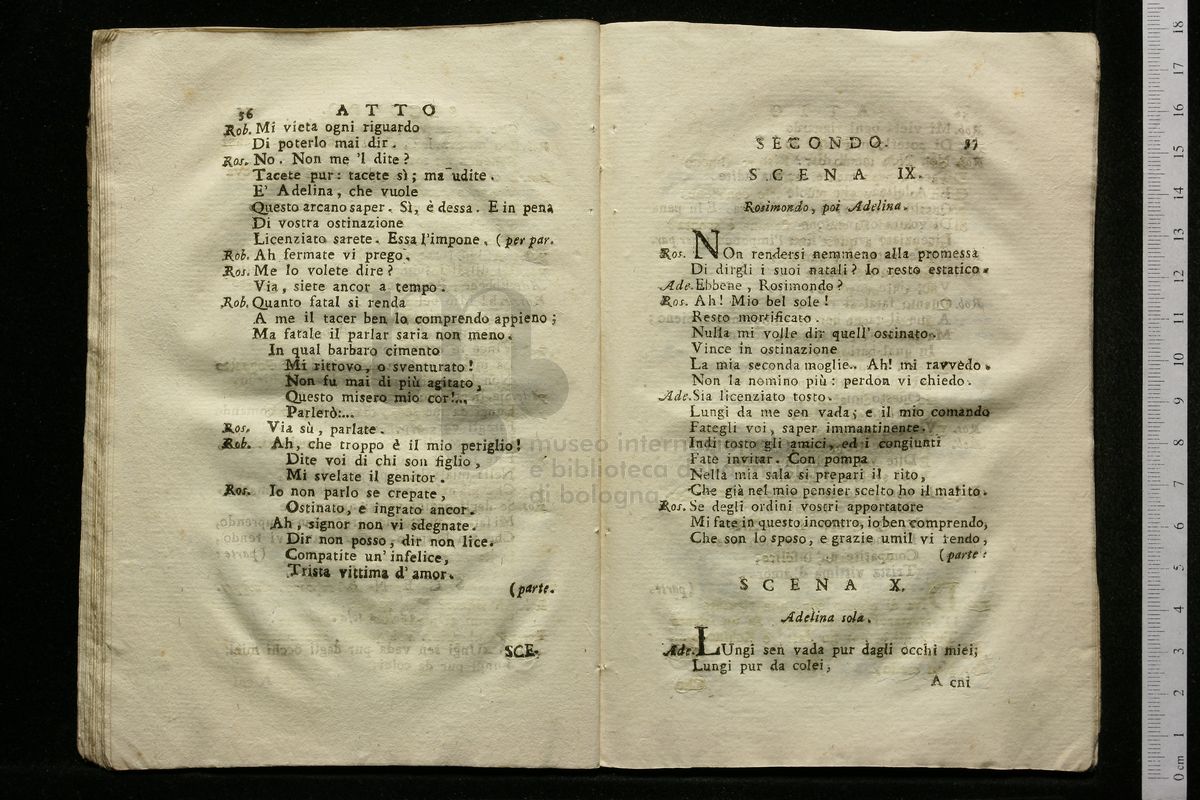 36 ATTO
Rob. Mi vieta ogni riguardo
Di poterlo mai dir.
Ros. No. Non me 'l dite?
Tacete pur: tacete sì; ma udite.
E' Adelina, che vuole
Questo arcano saper. Sì, è dessa. E in pena
Di vostra ostinazione
Licenziato sarete. Essa l'impone. (per par.
Rob. Ah fermate vi prego.
Ros. Me lo volete dire?
Via, siete ancor a tempo.
Rob. Quanto fatal si renda
A me il tacer ben lo comprendo appieno;
Ma fatale il parlar saria non meno.
In qual barbaro cimento
Mi ritrovo, o sventurato!
Non fu mai di più agitato,
Questo misero mio cor!...
Parlerò:...
Ros. Via sù, parlate.
Rob. Ah, che troppo è il mio periglio!
Dite voi di chi son figlio,
Mi svelate il genitor.
Ros. Io non parlo se crepate,
Ostinato, e ingrato ancor.
Ah, signor non vi sdegnate.
Dir non posso, dir non lice.
Compatite un' infelice,
Trista vittima d' amor.
(parte.
SCE-
SECONDO. 37
SCENA IX.
Rosimondo, poi Adelina.
Ros. NOn rendersi nemmeno alla promessa
Di dirgli i suoi natali? Io resto estatico.
Ade. Ebbene, Rosimondo?
Ros. Ah! Mio bel sole!
Resto mortificato.
Nulla mi volle dir quell' ostinato.
Vince in ostinazione
La mia seconda moglie. Ah! mi ravvedo.
Non la nomino più: perdon vi chiedo.
Ade. Sia licenziato tosto.
Lungi da me sen vada; e il mio comando
Fategli voi, saper immantinente.
Indi tosto gli amici, ed i congiunti
Fate invitar. Con pompa
Nella mia sala si prepari il rito,
Che già nel mio pensier scelto ho il marito.
Ros. Se degli ordini vostri apportatore
Mi fate in questo incontro, io ben comprendo,
Che son lo sposo, e grazie umil vi rendo,
(parte:
SCENA X.
Adelina sola.
Ade. LUngi sen vada pur dagli occhi miei;
Lungi pur da colei,
A cni
museo intern
e biblioteca d
di bologna
0 cm 1 2 3 4 5 6 7 8 9 10 11 12 13 14 15 16 17 18